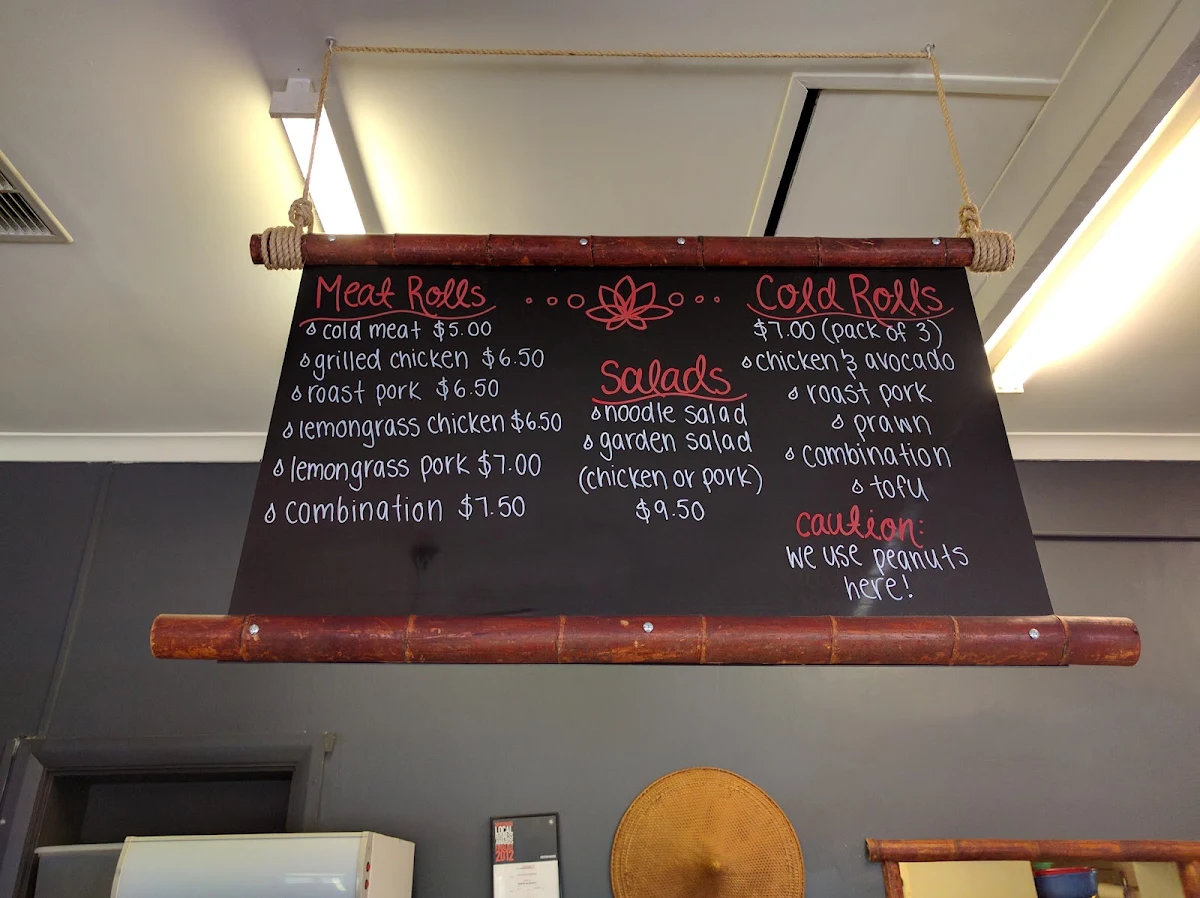 Meat Rolls
cold meat $5.00
grilled chicken $6.50
roast pork $6.50
lemongrass chicken $6.50
lemongrass pork $7.00
combination $7.50
Salads
noodle salad
garden salad
(chicken or pork)
$9.50
Cold Rolls
$7.00 (pack of 3)
chicken & avocado
roast pork
prawn
combination
tofu
caution:
we use peanuts
here!
LOCAL
2012